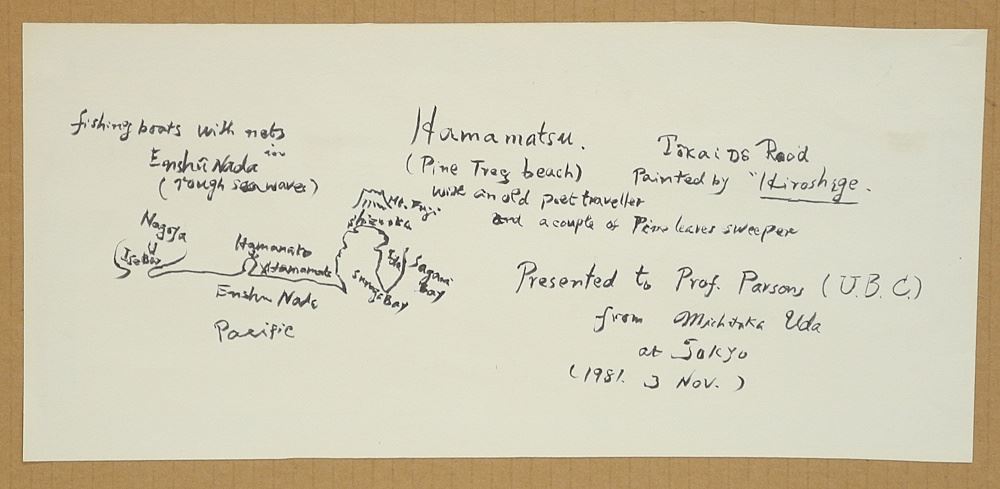 fishing boats with nets
in
Enshū Nada
(rough sea waves)
Hamamatsu.
(Pine Tree beach)
with an old poet traveller
and a couple of Pine leaves sweeper
Tōkaidō Road
Painted by "Hiroshige.
Mt. Fuji
Shizuoka
Nagoya
Ise Bay
Hamanako
Hamamats
Enshu Nada
Pacific
Izu
Suruga Bay
Sagami
Bay
Presented to Prof. Parsons (U.B.C.)
from Michitaka Uda
at Tokyo
(1981. 3 Nov.)